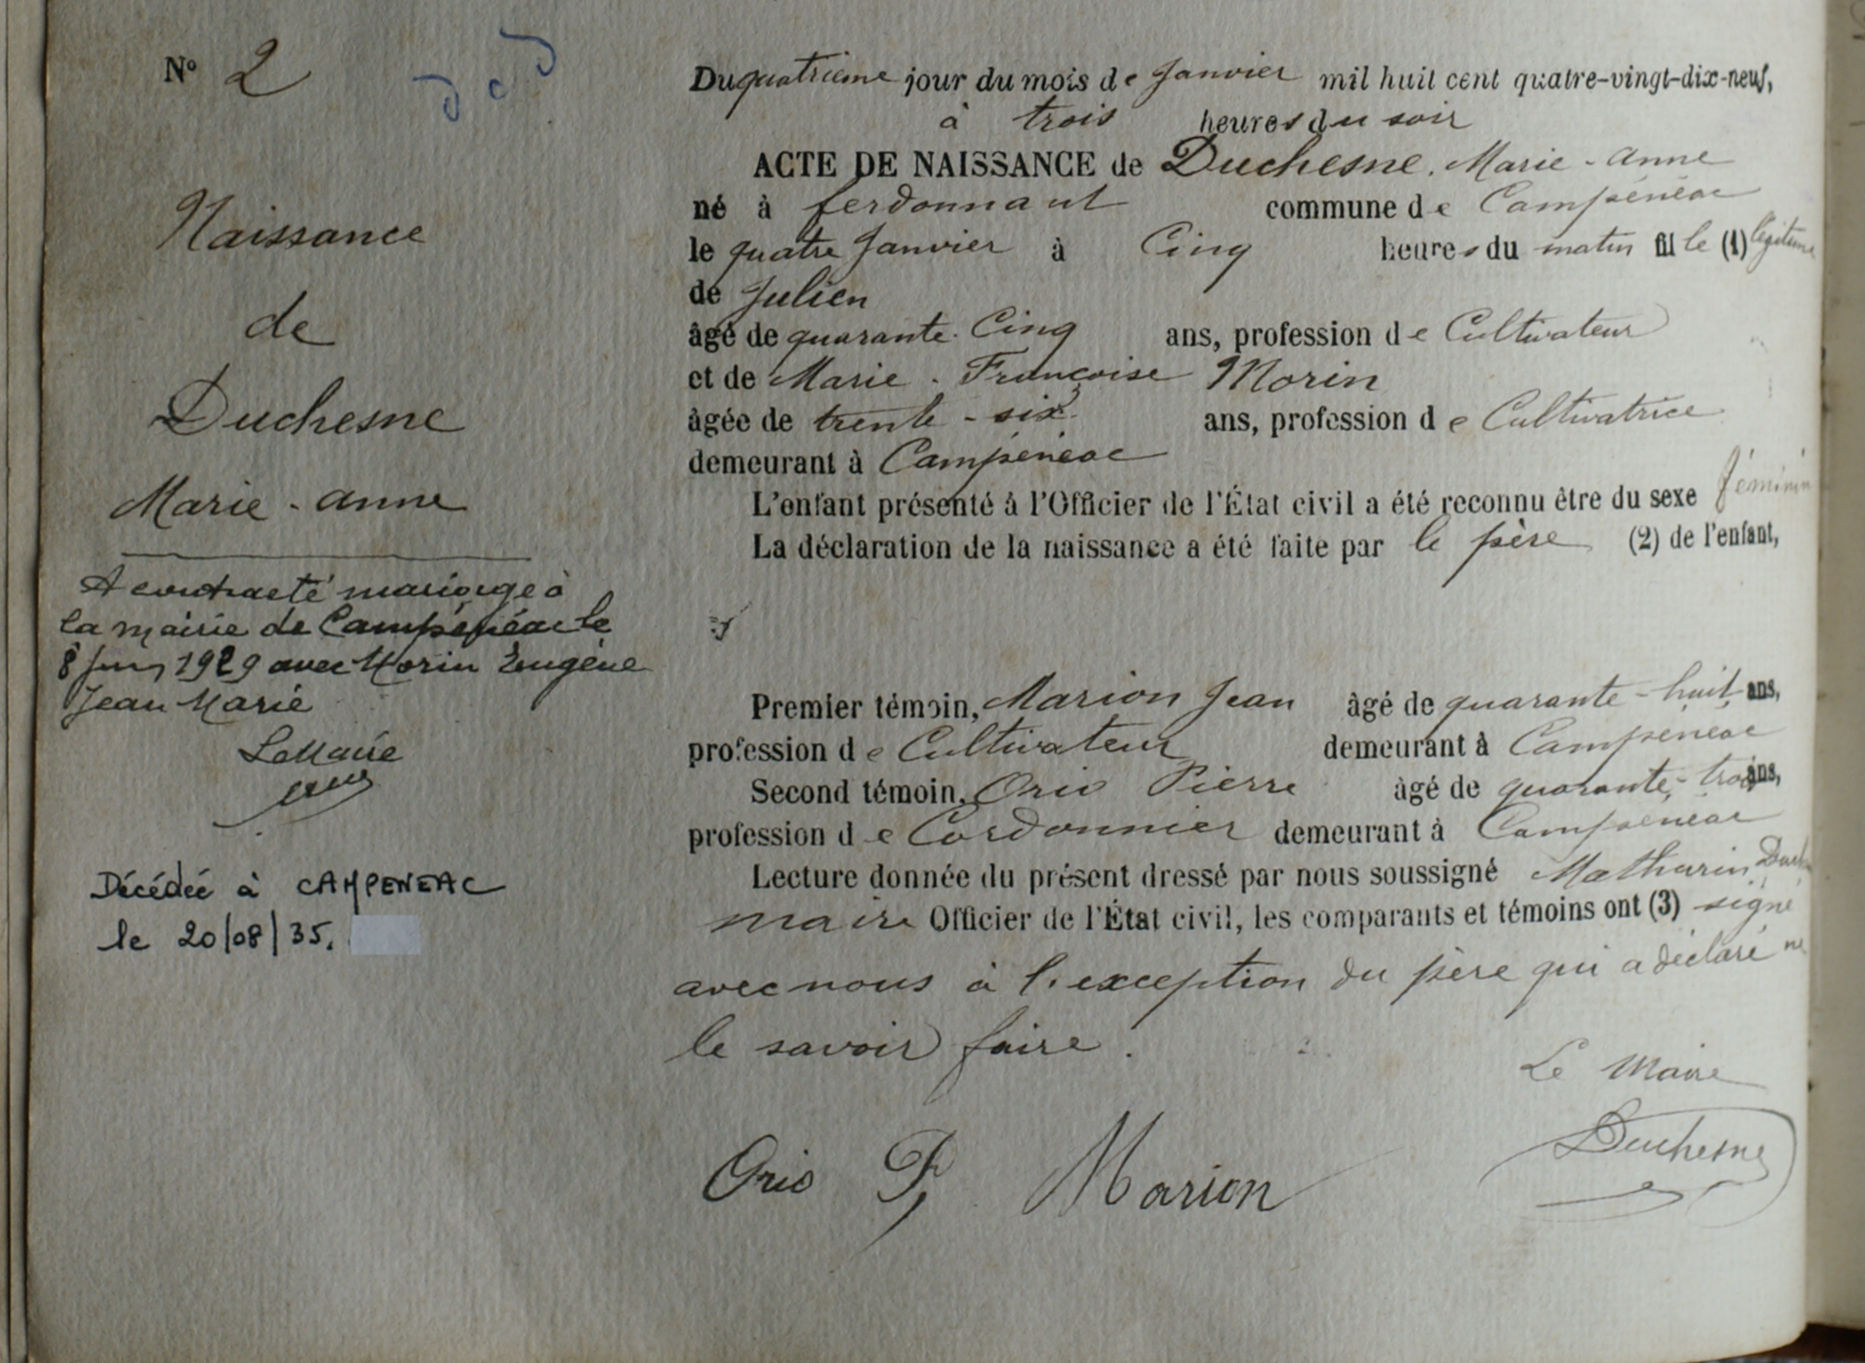 N° 2
Naissance
de
Duchesne
Marie-anne
A contracté mariage à
la mairie de Campénéac le
8 1929 avec Morin Eugène
Jean Marie
Le Maire
Décédée à CAMPENEAC
le 20/08/35.
Du quatrième jour du mois de Janvier mil huit cent quatre-vingt-dix-neuf,
à trois heures du soir
ACTE DE NAISSANCE de Duchesne. Marie-anne
né à ferdonnant commune de Campénéac
le quatre Janvier à Cinq heures du matin fille (1) légitime
de Julien
âgé de quarante-Cinq ans, profession de Cultivateur
et de Marie-Françoise Morin
âgée de trente-six ans, profession de Cultivatrice
demeurant à Campénéac
L'enfant présenté à l'Officier de l'État civil a été reconnu être du sexe féminin
La déclaration de la naissance a été faite par le père (2) de l'enfant,
Premier témoin, Marion Jean âgé de quarante-huit ans,
profession de Cultivateur demeurant à Campénéac
Second témoin, Orio Pierre âgé de quarante-trois ans,
profession de Cordonnier demeurant à Campénéac
Lecture donnée du présent dressé par nous soussigné Mathurin
maire Officier de l'État civil, les comparants et témoins ont (3) signé
avec nous à l'exception du père qui a déclaré ne
le savoir faire.
Le Maire
Orio P. Marion Duchesne